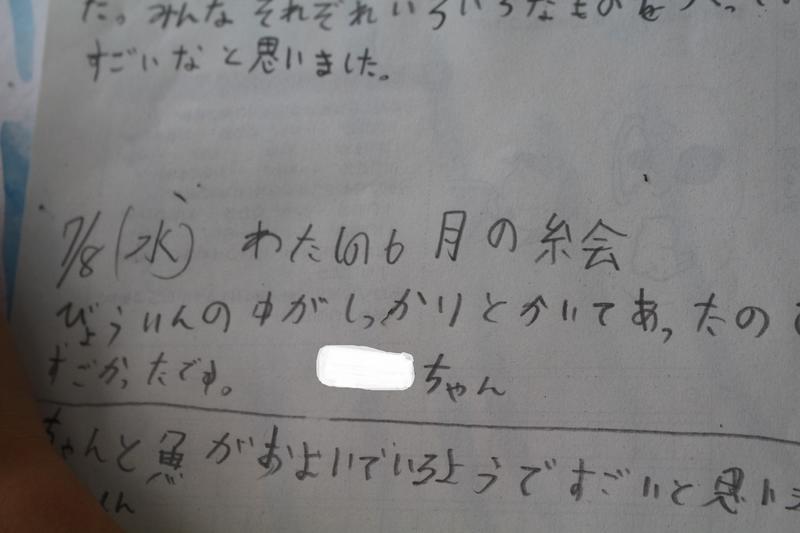 た。みんなそれぞれいろいろなものをつくってい
すごいなと思いました。
7/8(水) わたしの6月の絵
びょういんの中がしっかりとかいてあったので
すごかったです。 ちゃん
ちゃんと魚がおよいでいるようですごいと思いま
くん